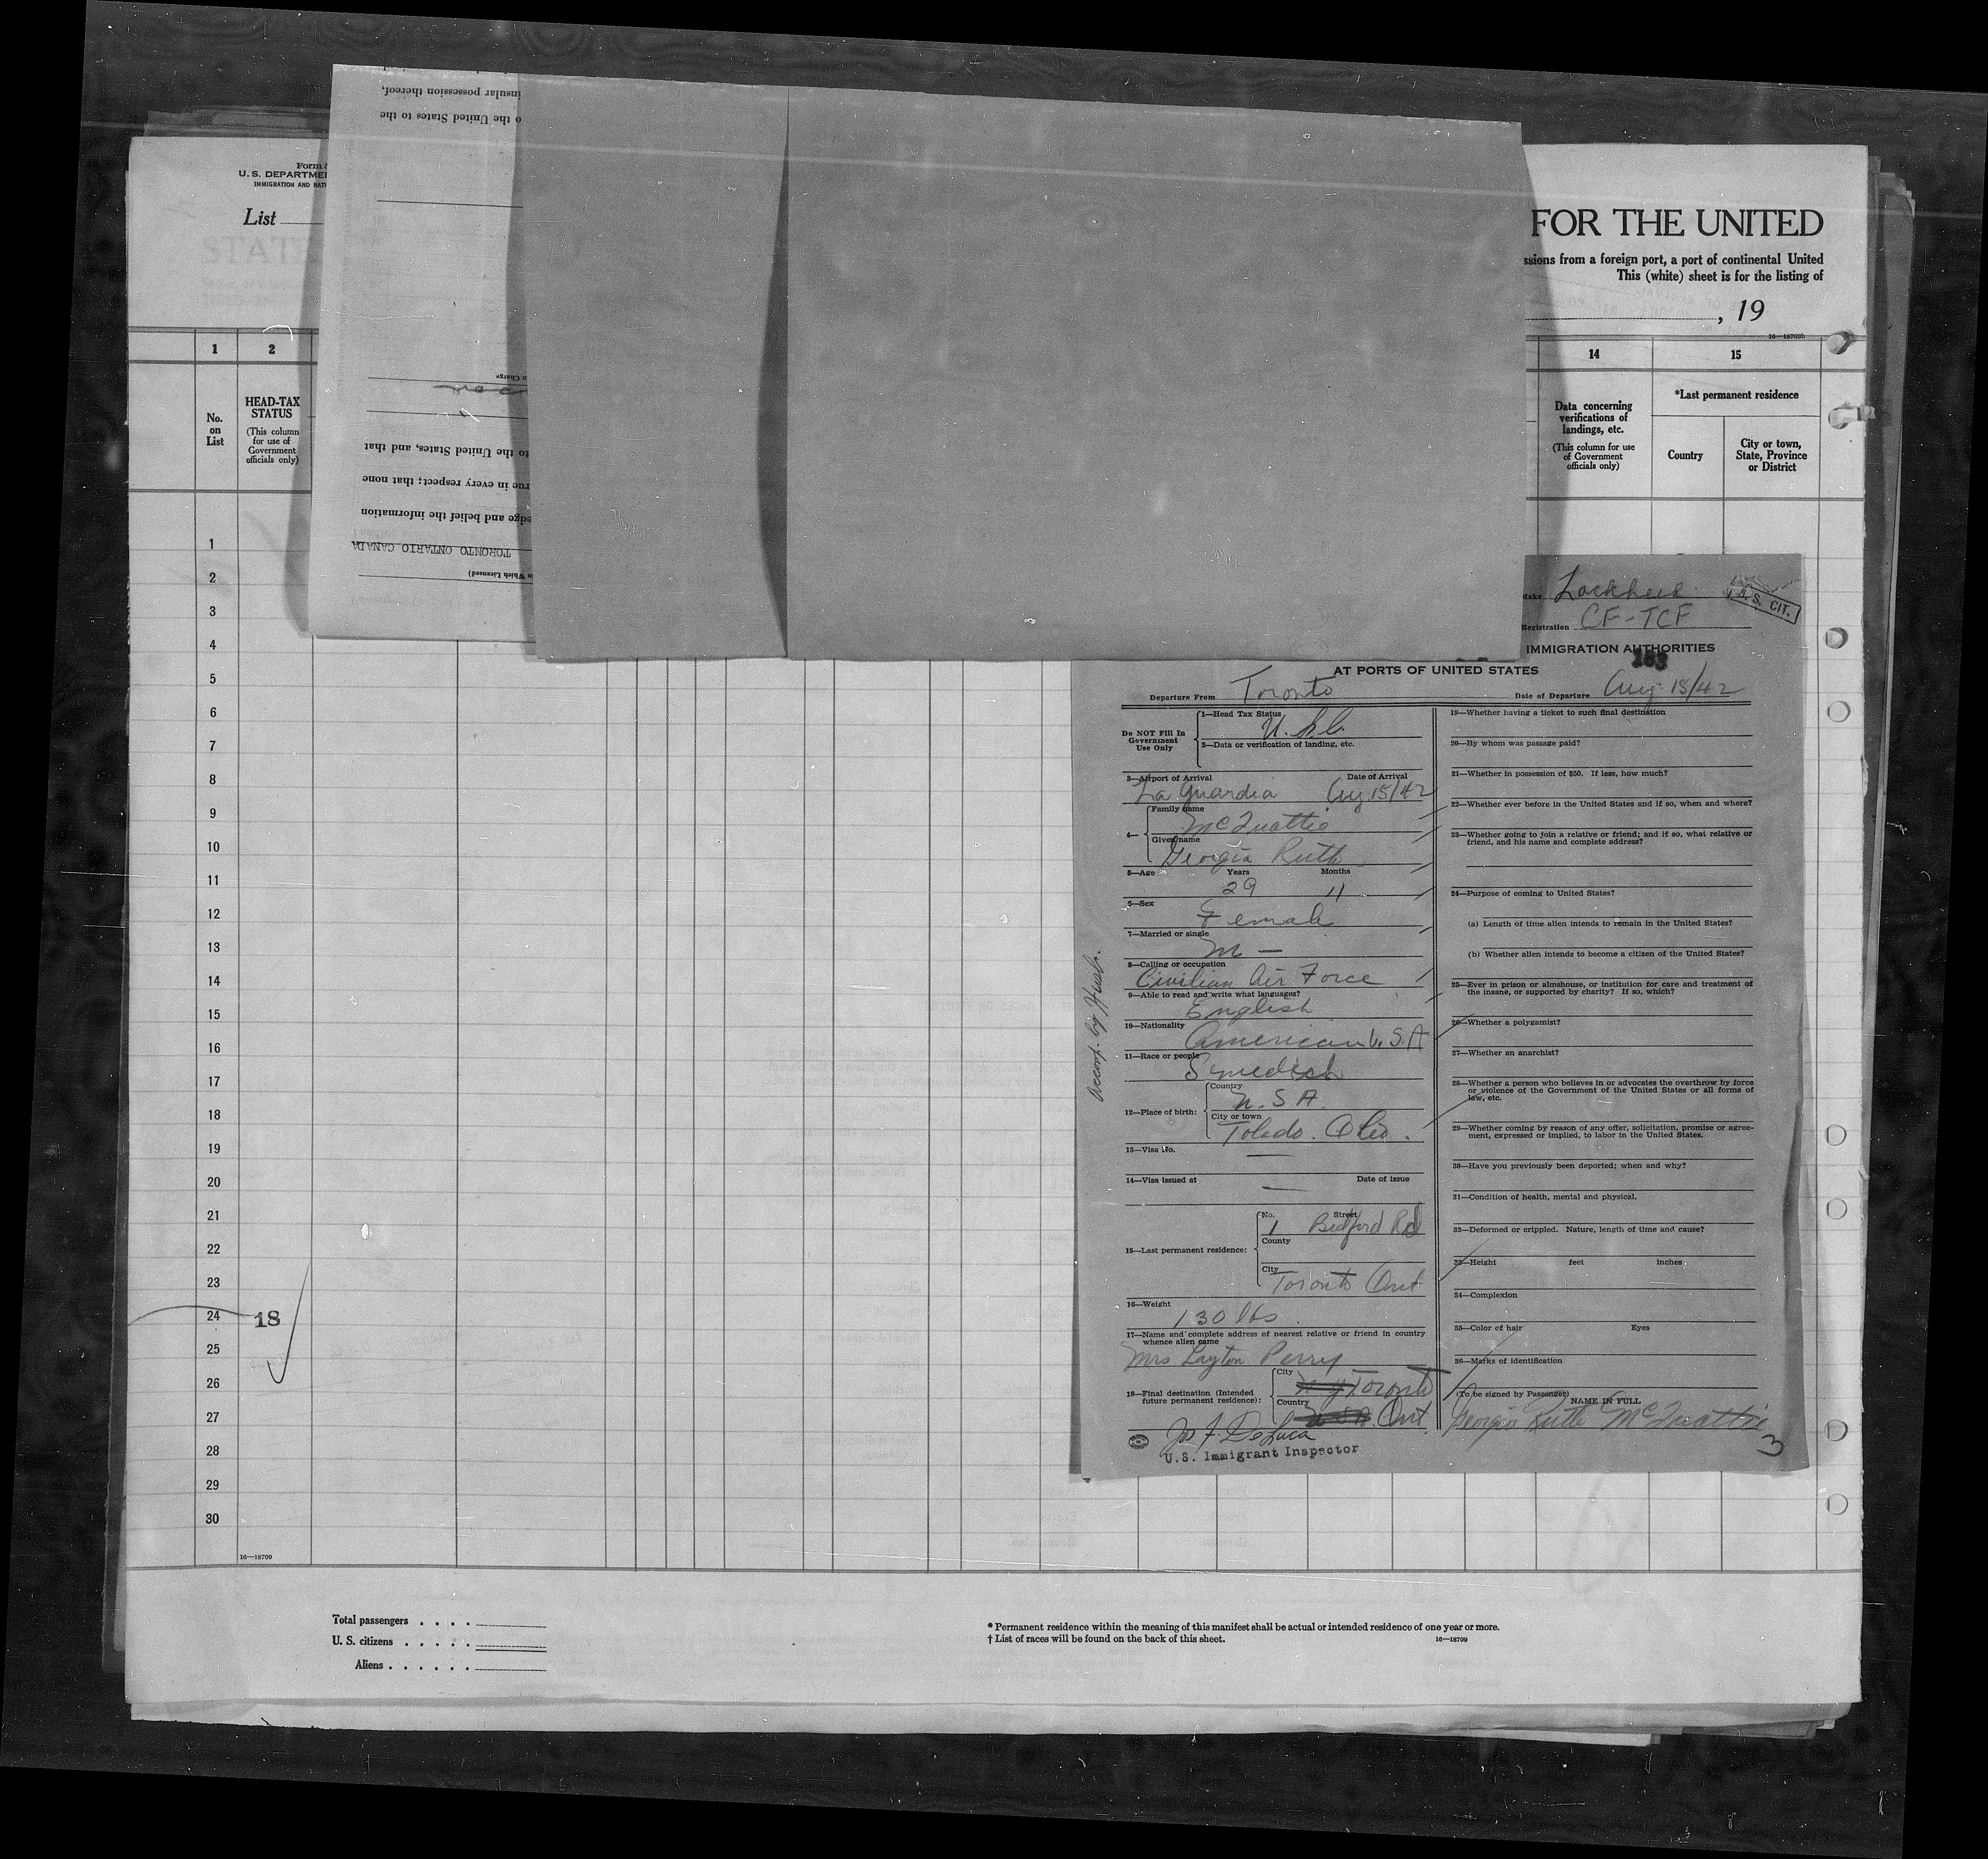 insular possession thereof,
o the United States to the
Form
U. S. DEPARTME
IMMIGRATION AND NAT
List
FOR THE UNITED
ssions from a foreign port, a port of continental United
This (white) sheet is for the listing of
, 19
16—18709b
1
2
14
15
No.
on
List
HEAD-TAX
STATUS
(This column
for use of
Government
officials only)
Data concerning
verifications of
landings, etc.
(This column for use
of Government
officials only)
*Last permanent residence
Country
City or town,
State, Province
or District
n Charge
to the United States, and that
rue in every respect; that none
edge and belief the information
TORONTO ONTARIO CANADA
in Which Licensed)
1
2
3
4
5
6
7
8
9
10
11
12
13
14
15
16
17
18
19
20
21
22
23
24
18
25
26
27
28
29
30
16—18709
Make Lockheed
U. S. CIT.
Registration CF-TCF
IMMIGRATION AUTHORITIES
AT PORTS OF UNITED STATES
Departure From Toronto
Date of Departure Aug 15/42
Do NOT Fill In
Government
Use Only
1—Head Tax Status
U.S.C.
2—Data or verification of landing, etc.
3—Airport of Arrival Date of Arrival
La Guardia Aug 15/42
4—
Family name
McQuattie
Given name
Georgia Ruth
5—Age Years Months
29 11
6—Sex
Female
7—Married or single
M —
8—Calling or occupation
Civilian Air Force
9—Able to read and write what languages?
English
10—Nationality
American U.S.A
11—Race or people
Swedish
12—Place of birth:
Country
U.S.A.
City or town
Toledo. Ohio.
13—Visa No.
—
14—Visa issued at Date of issue
—
15—Last permanent residence:
No. Street
1 Bedford Rd
County
City
Toronto Ont
16—Weight
130 lbs.
17—Name and complete address of nearest relative or friend in country
whence alien came
Mrs Layton Perry
18—Final destination (Intended
future permanent residence):
City
N Y Toronto
Country
U S A. Ont
Jos F. DeLuca
U.S. Immigrant Inspector
Accomp. by Husb.
19—Whether having a ticket to such final destination
20—By whom was passage paid?
21—Whether in possession of $50. If less, how much?
22—Whether ever before in the United States and if so, when and where?
23—Whether going to join a relative or friend; and if so, what relative or
friend, and his name and complete address?
24—Purpose of coming to United States?
(a) Length of time alien intends to remain in the United States?
(b) Whether alien intends to become a citizen of the United States?
25—Ever in prison or almshouse, or institution for care and treatment of
the insane, or supported by charity? If so, which?
26—Whether a polygamist?
27—Whether an anarchist?
28—Whether a person who believes in or advocates the overthrow by force
or violence of the Government of the United States or all forms of
law, etc.
29—Whether coming by reason of any offer, solicitation, promise or agree-
ment, expressed or implied, to labor in the United States.
30—Have you previously been deported; when and why?
31—Condition of health, mental and physical.
32—Deformed or crippled. Nature, length of time and cause?
33—Height feet inches
34—Complexion
35—Color of hair Eyes
36—Marks of identification
(To be signed by Passenger)
NAME IN FULL
Georgia Ruth McQuattie
3
Total passengers . . . .
U. S. citizens . . . . .
Aliens . . . . . .
* Permanent residence within the meaning of this manifest shall be actual or intended residence of one year or more.
† List of races will be found on the back of this sheet.
16—18709